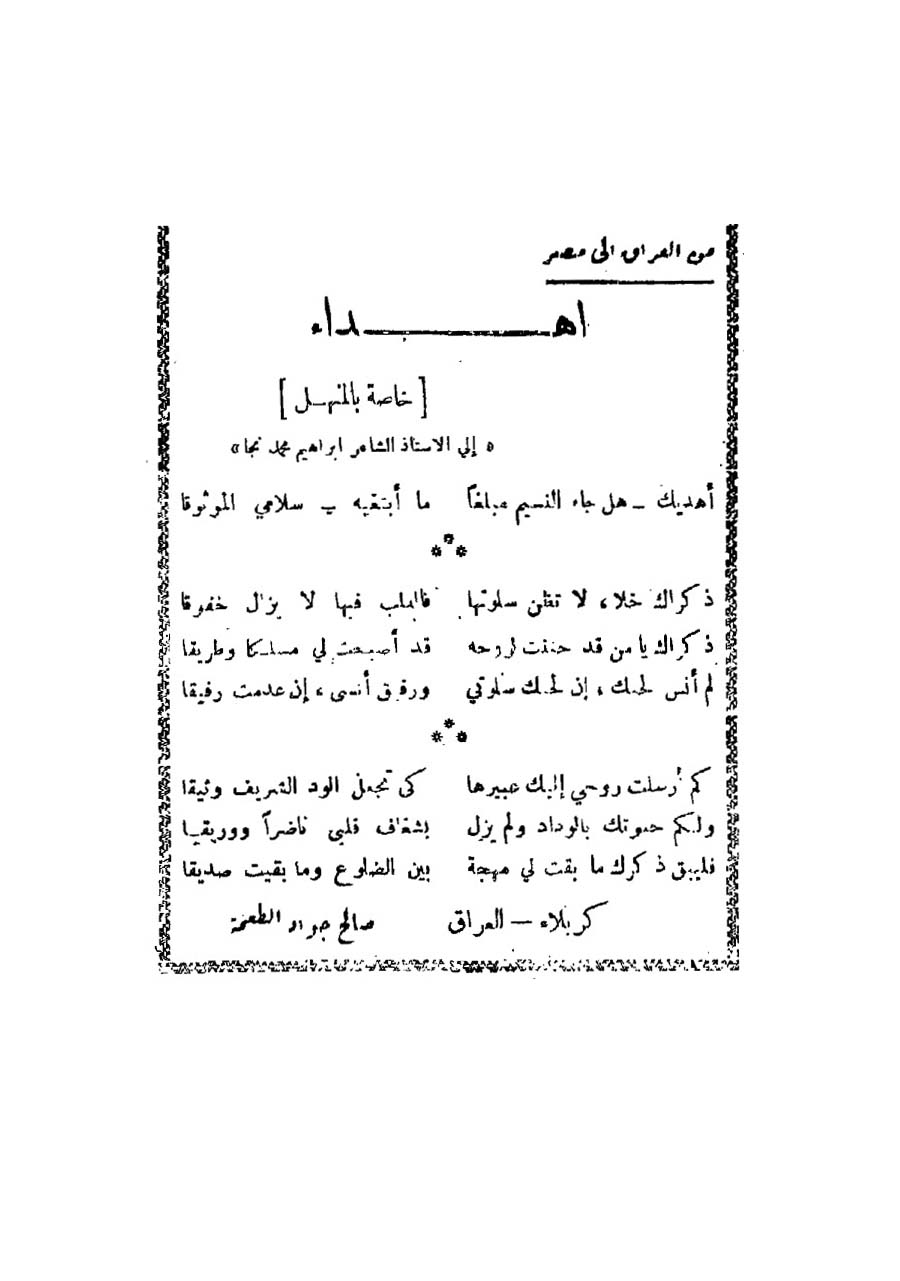 من العراق الى مصر
اهـــداء
[ خاصة بالمنهـل ]
« إلي الاستاذ الشاعر ابراهيم محمد نجا »
أهديك ــ هل جاء النسيم مبلغاً ما أبتغيه ــ سلامي الموثوقا
***
ذكراك خلا، لا تظن سلوتها فالقلب فيها لا يزال خفوقا
ذكراك يا من قد حننت لروحه قد أصبحت لي مسلكا وطريقا
لم أنس لحنك، إن لحنك سلوتي ورفيق أنسى، إن عدمت رفيقا
***
كم أرسلت روحي إليك عبيرها كى تجعل الود الشريف وثيقا
ولكم حبوتك بالوداد ولم يزل بشغاف قلبي ناضراً ووريقـا
فليبق ذكرك ما بقت لي مهجة بين الضلوع وما بقيت صديقا
كربلاء ــ العراق صالح جواد الطعمة